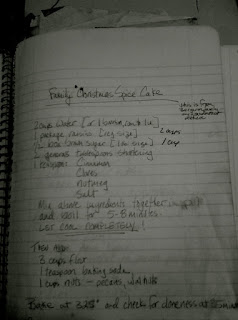 Family Christmas Spice Cake
this is from
2 cups Water
package raisins [reg size]
2 cups
box brown sugar [1 lb. size]
1 cup
2 generous tablespoons shortening
1 teaspoon Cinnamon
Cloves
Nutmeg
Salt
Mix above ingredients together in
and boil for 5-8 minutes.
Let cool COMPLETELY!
Then Add
3 cups flour
1 teaspoon baking soda
1 cup nuts - pecans, walnuts
Bake at 325° and check for doneness at